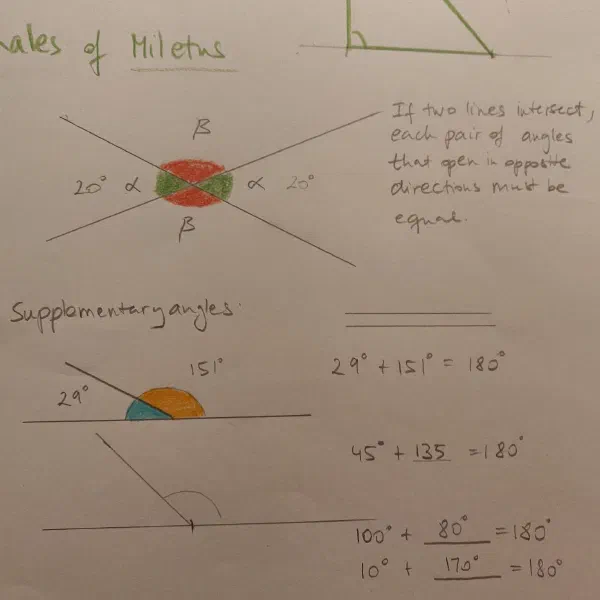 of Miletus
β
20° α
α 20°
β
If two lines intersect,
each pair of angles
that open in opposite
directions must be
equal.
Supplementary angles.
29°
151°
29° + 151° = 180°
45° + 135 = 180°
100° + 80° = 180°
10° + 170° = 180°